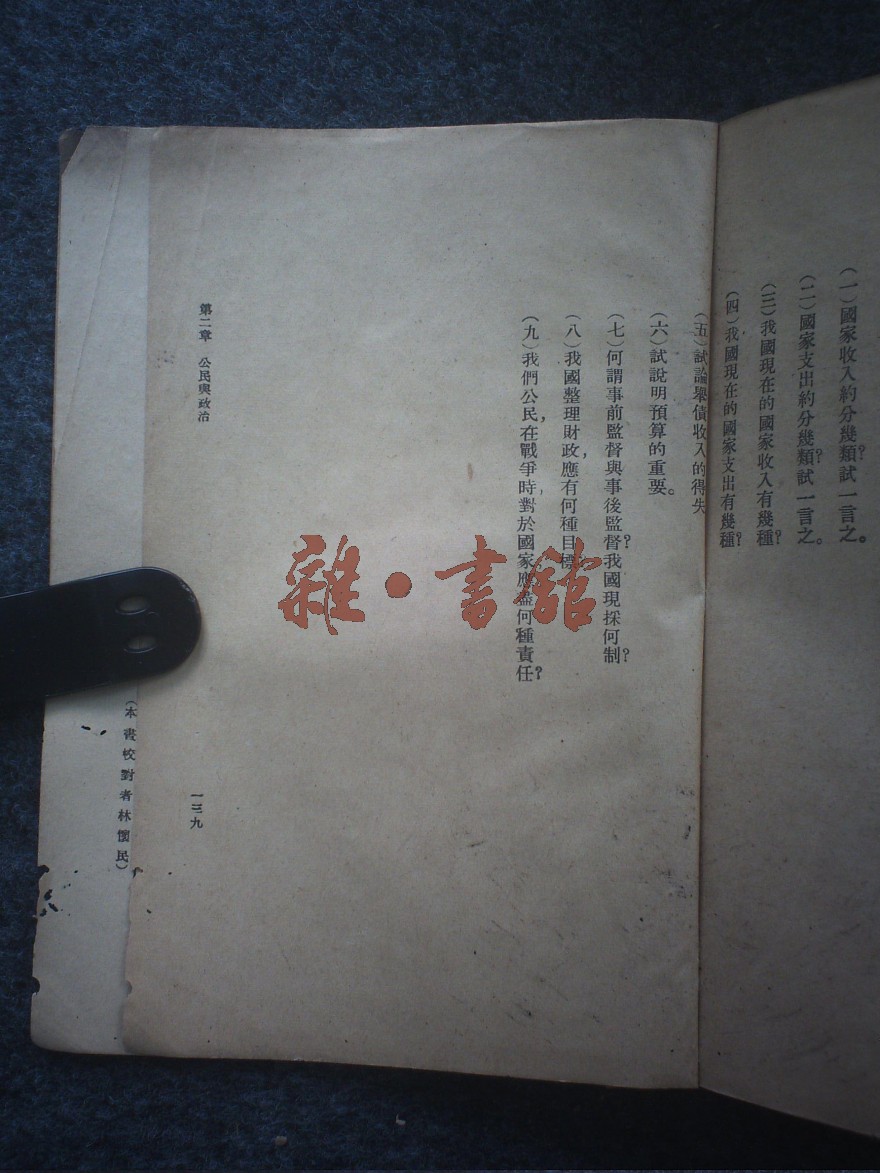 (一)國家收入約分幾類?試一言之。
(二)國家支出約分幾類?試一言之。
(三)我國現在的國家收入有幾種?
(四)我國現在的國家支出有幾種?
(五)試論舉債收入的得失
(六)試說明預算的重要。
(七)何謂事前監督與事後監督?我國現採何制?
(八)我國整理財政,應有何種目標
(九)我們公民,在戰爭時,對於國家應盡何種責任?
第二章 公民與政治
一三九
(本書校對者林懷民)
雜·書館